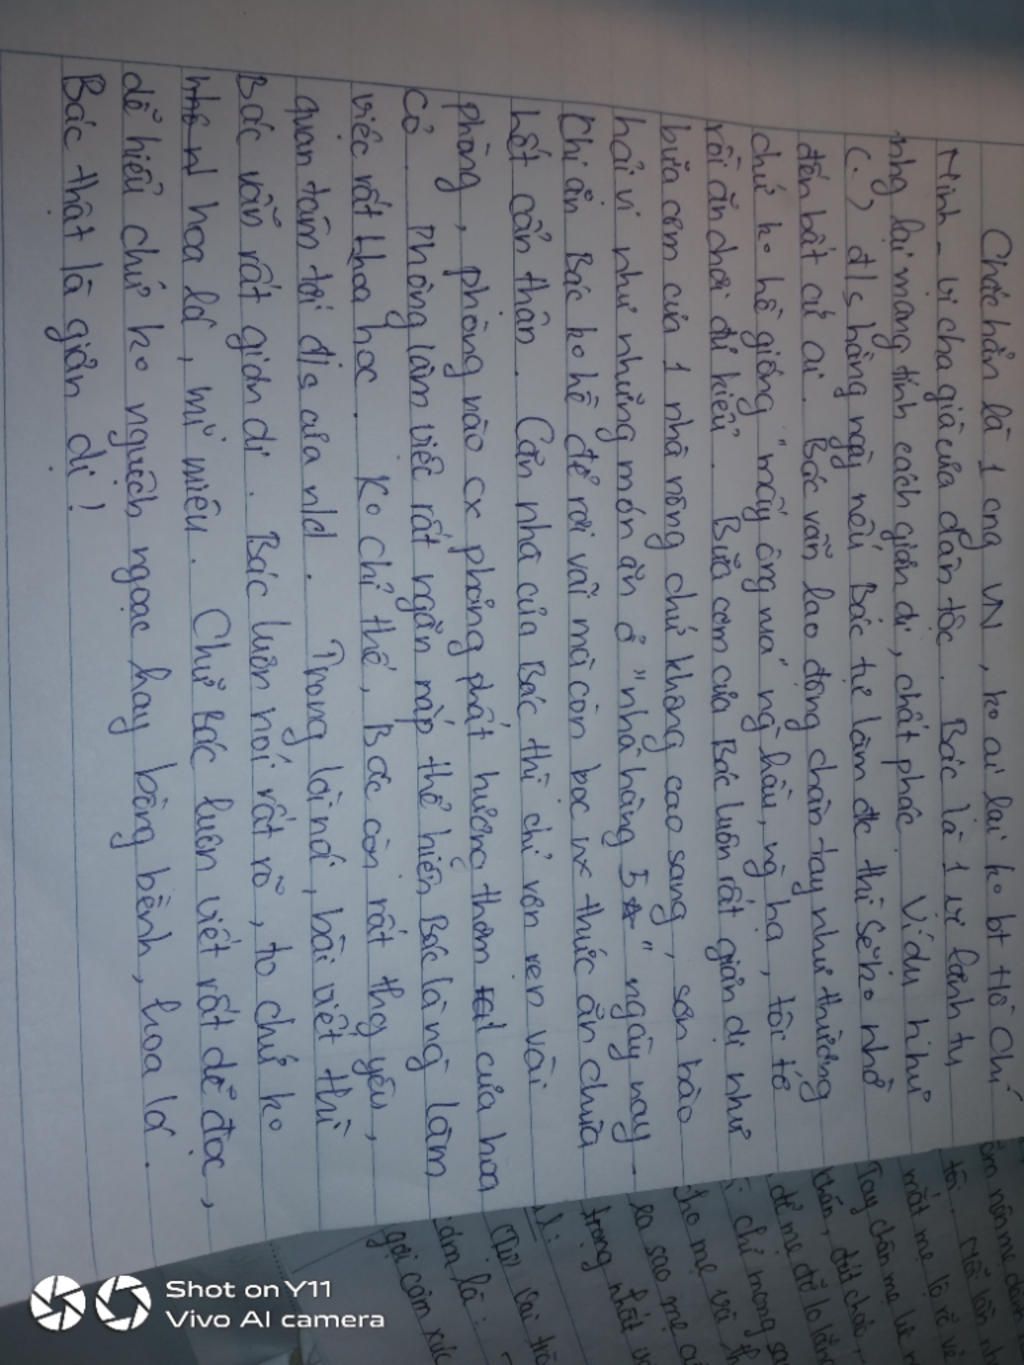 Chắc hẳn là 1 cng VN, ko ai lại ko bt Hồ Chí
Minh - vị cha già của dân tộc. Bác là 1 vị lãnh tụ
nhg lại mang tính cách giản dị, chất phác. Ví dụ như
(.) đ/s hằng ngày nếu Bác tự làm đc thì sẽ ko nhờ
đến bất cứ ai. Bác vẫn lao động chân tay như thường
chứ ko hề giống "mấy ông vua" ng hầu, ng hạ, tối tớ
rồi ăn chơi đủ kiểu. Bữa cơm của Bác luôn rất giản dị như
bữa cơm của 1 nhà nông chứ không cao sang, sơn hào
hải vị như những món ăn ở "nhà hàng 5☆" ngày nay.
Khi ăn Bác ko hề để rơi vãi mà còn bọc nx thức ăn chưa
hết cẩn thận. Căn nhà của Bác thì chỉ vỏn vẹn vài
phòng, phòng nào cx phảng phất hương thơm của hoa
cỏ. Phòng làm việc rất ngăn nắp thể hiện Bác là ng làm
việc rất khoa học. Ko chỉ thế, Bác còn rất thg yêu,
quan tâm tới đ/s của nld. Trong lời nói, bài viết thì
Bác vẫn rất giản dị. Bác luôn nói rất rõ, to chứ ko
hoa lá, mĩ miều. Chữ Bác luôn viết rất dễ đọc,
dễ hiểu chứ ko nguệch ngoạc hay bồng bềnh, hoa lá.
Bác thật là giản dị!
tôi. Mỗi lần
mắt mẹ lộ rõ vẻ
Tay chân mẹ
để mẹ đỡ lo lắng
chỉ mong sao
cho mẹ và
sao mẹ
trọng nhất
gợi cảm xúc
Shot on Y11
Vivo AI camera